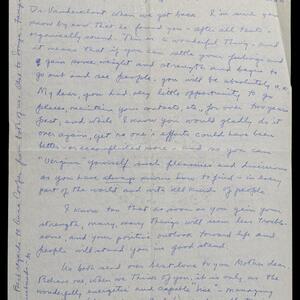 Dr. Vanderchart when we get back. I'm sure you
know by now that he found you - after all tests -
organically sound. This is a wonderful thing - and
it means that if you can settle your feelings and
gain more weight and strength and begin to
go out and see people - you will be absolutely
My dear, you had very little opportunity to go
places, making your contacts etc., for over two years
past, and while I know you would gladly do it
over again, yet no one's efforts could have been
better - or accomplished more - and so you can
yourself such pleasures and
as you have always known how to find - in every
part of the world and with all kinds of people.
I know too that as soon as you gain your
strength, many, many things will seem less trouble-
some, and your positive outlook toward life and
people will stand you in good stead.
We both send our best love to you Mother dear
Believe me when we think of you, it is only as the
wonderfully energetic and capable managing
Best regards to Anna Cooper from both of us. Also to